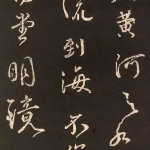 黄河之水
流到海不復
堂明鏡